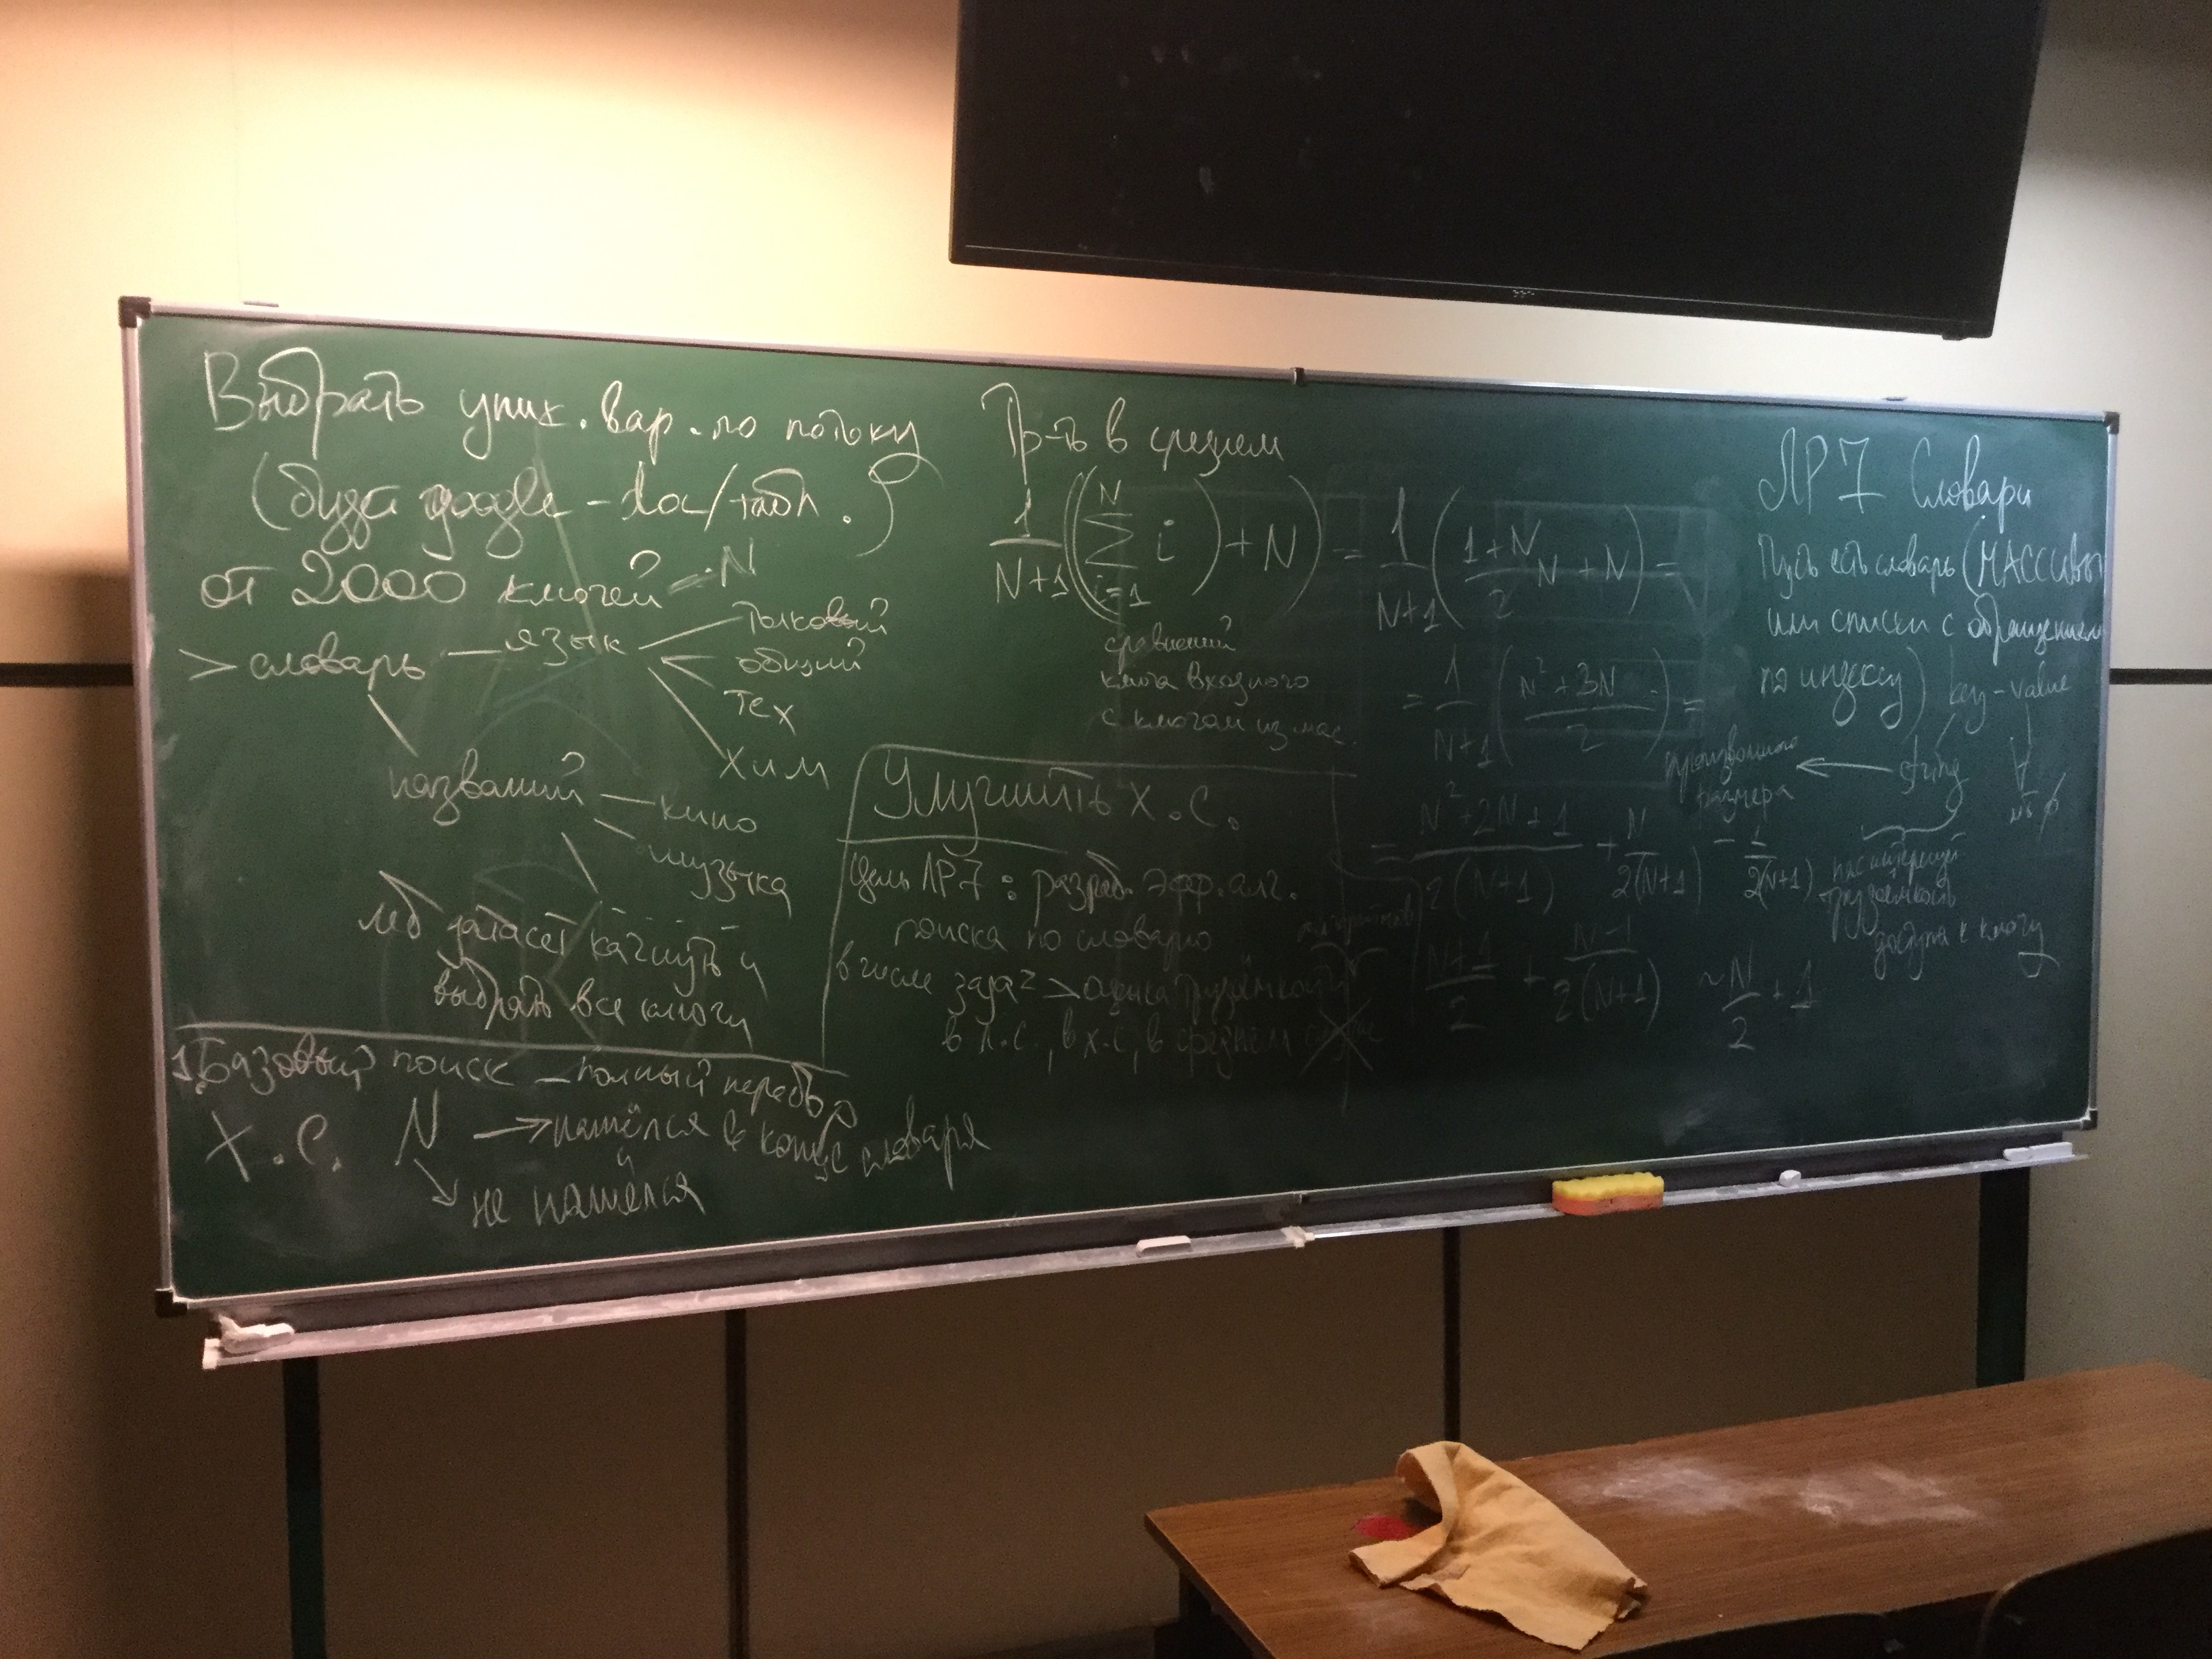 Выбрать уник. вар. по потоку
(буда google-doc/табл.)
от 2000 ключей - N
> словарь — язык
толковый
общий
тех
хим
названий
кино
музыка
датасет качнуть и
выбрать все ключи
1. Базовый поиск — полный перебор
Х.С. N → нашёлся в конце словаря
не нашёлся
Тр-ть в среднем
1/(N+1) ((∑_{i=1}^{N} i) + N) = 1/(N+1) ((1+N)/2 N + N) =
сравнений
ключа входного
с ключом из мас.
= 1/(N+1) ((N²+3N)/2) =
= (N²+2N+1)/(2(N+1)) + N/(2(N+1)) - 1/(2(N+1))
(N+1)/2 + (N-1)/(2(N+1)) ~ N/2 + 1
Улучшить Х.С.
Цель ЛР7: разраб. эфф. алг.
поиска по словарю
в числе задач > оценка трудоёмкости
в л.с., в х.с, в среднем
ЛР7 Словари
Пусть есть словарь (массивы
или списки с обращением
по индексу)
key-value
произвольного
размера
← string
∀
нас интересует
трудоёмкость
доступа к ключу